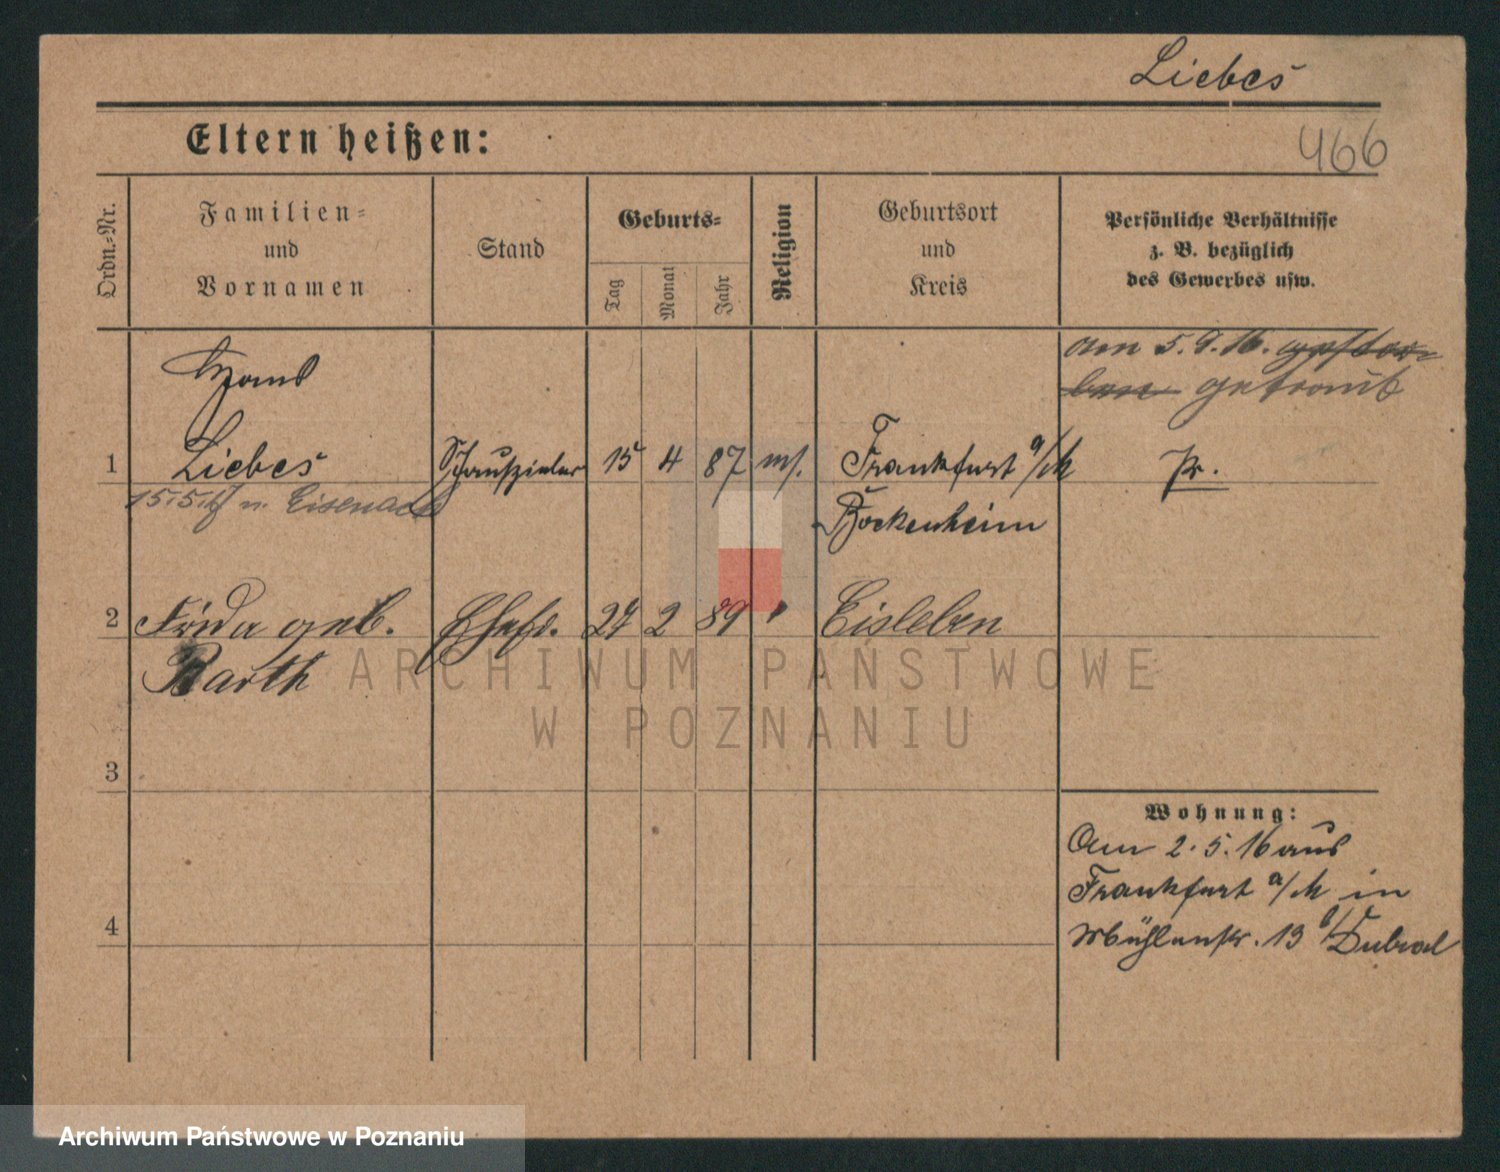 Liebes
Eltern heißen:
466
Ordn.-Nr.
Familien-
und
Vornamen
Stand
Geburts-
Tag
Monat
Jahr
Religion
Geburtsort
und
Kreis
Persönliche Verhältnisse
z. B. bezüglich
des Gewerbes usw.
am 5.9.16. gestor-
ben getraut
Hans
1 Liebes Schauspieler 15 4 87 ms. Frankfurt a/M Pr.
15.5.17 n. Eisenach
Bockenheim
2 Frida geb. Ehefr. 24 2 89 " Eisleben
Barth
ARCHIWUM PAŃSTWOWE
W POZNANIU
3
Wohnung:
Am 2.5.16 aus
Frankfurt a/M in
4
Mühlenstr. 13 b/Dubral
Archiwum Państwowe w Poznaniu